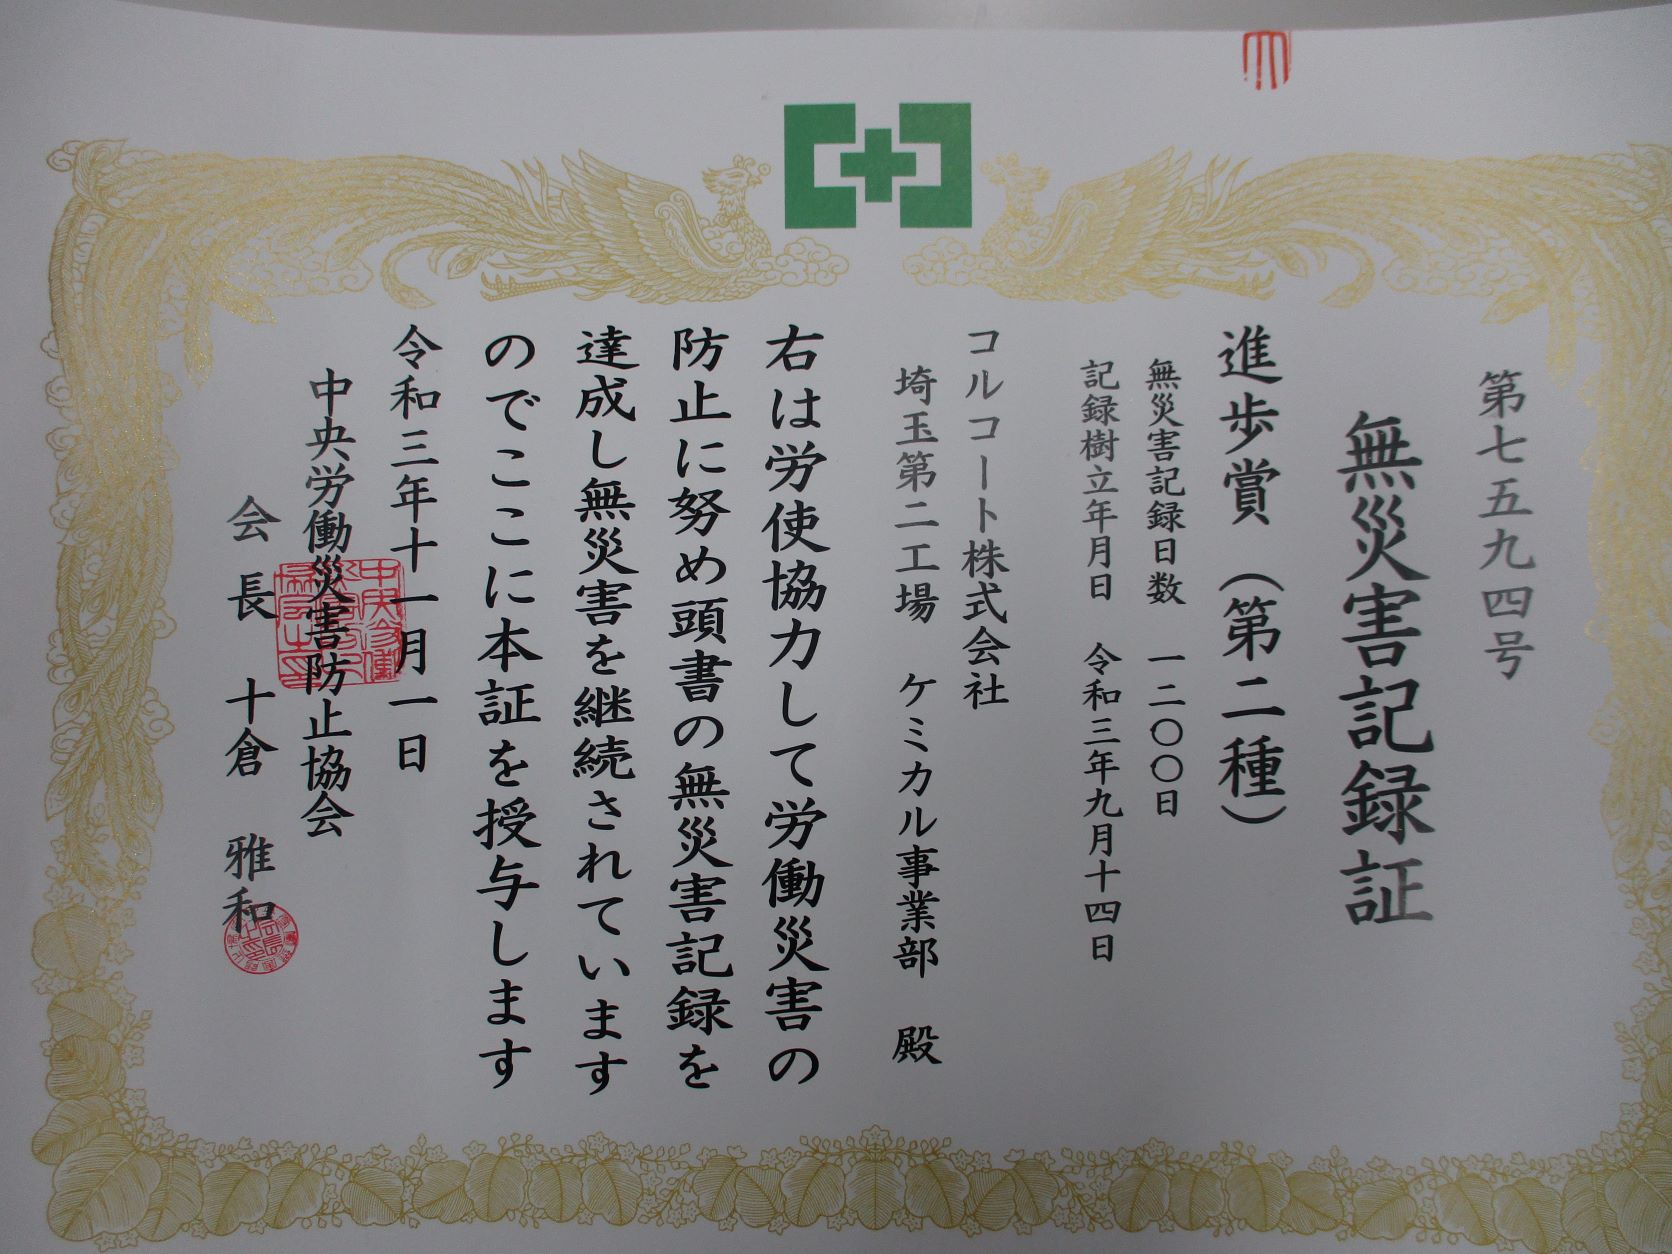 第七五九四号
無災害記録証
進歩賞（第二種）
無災害記録日数　一二〇〇日
記録樹立年月日　令和三年九月十四日
コルコート株式会社
埼玉第二工場　ケミカル事業部　殿
右は労使協力して労働災害の
防止に努め頭書の無災害記録を
達成し無災害を継続されています
のでここに本証を授与します
令和三年十一月一日
中央労働災害防止協会
会長　十倉　雅和